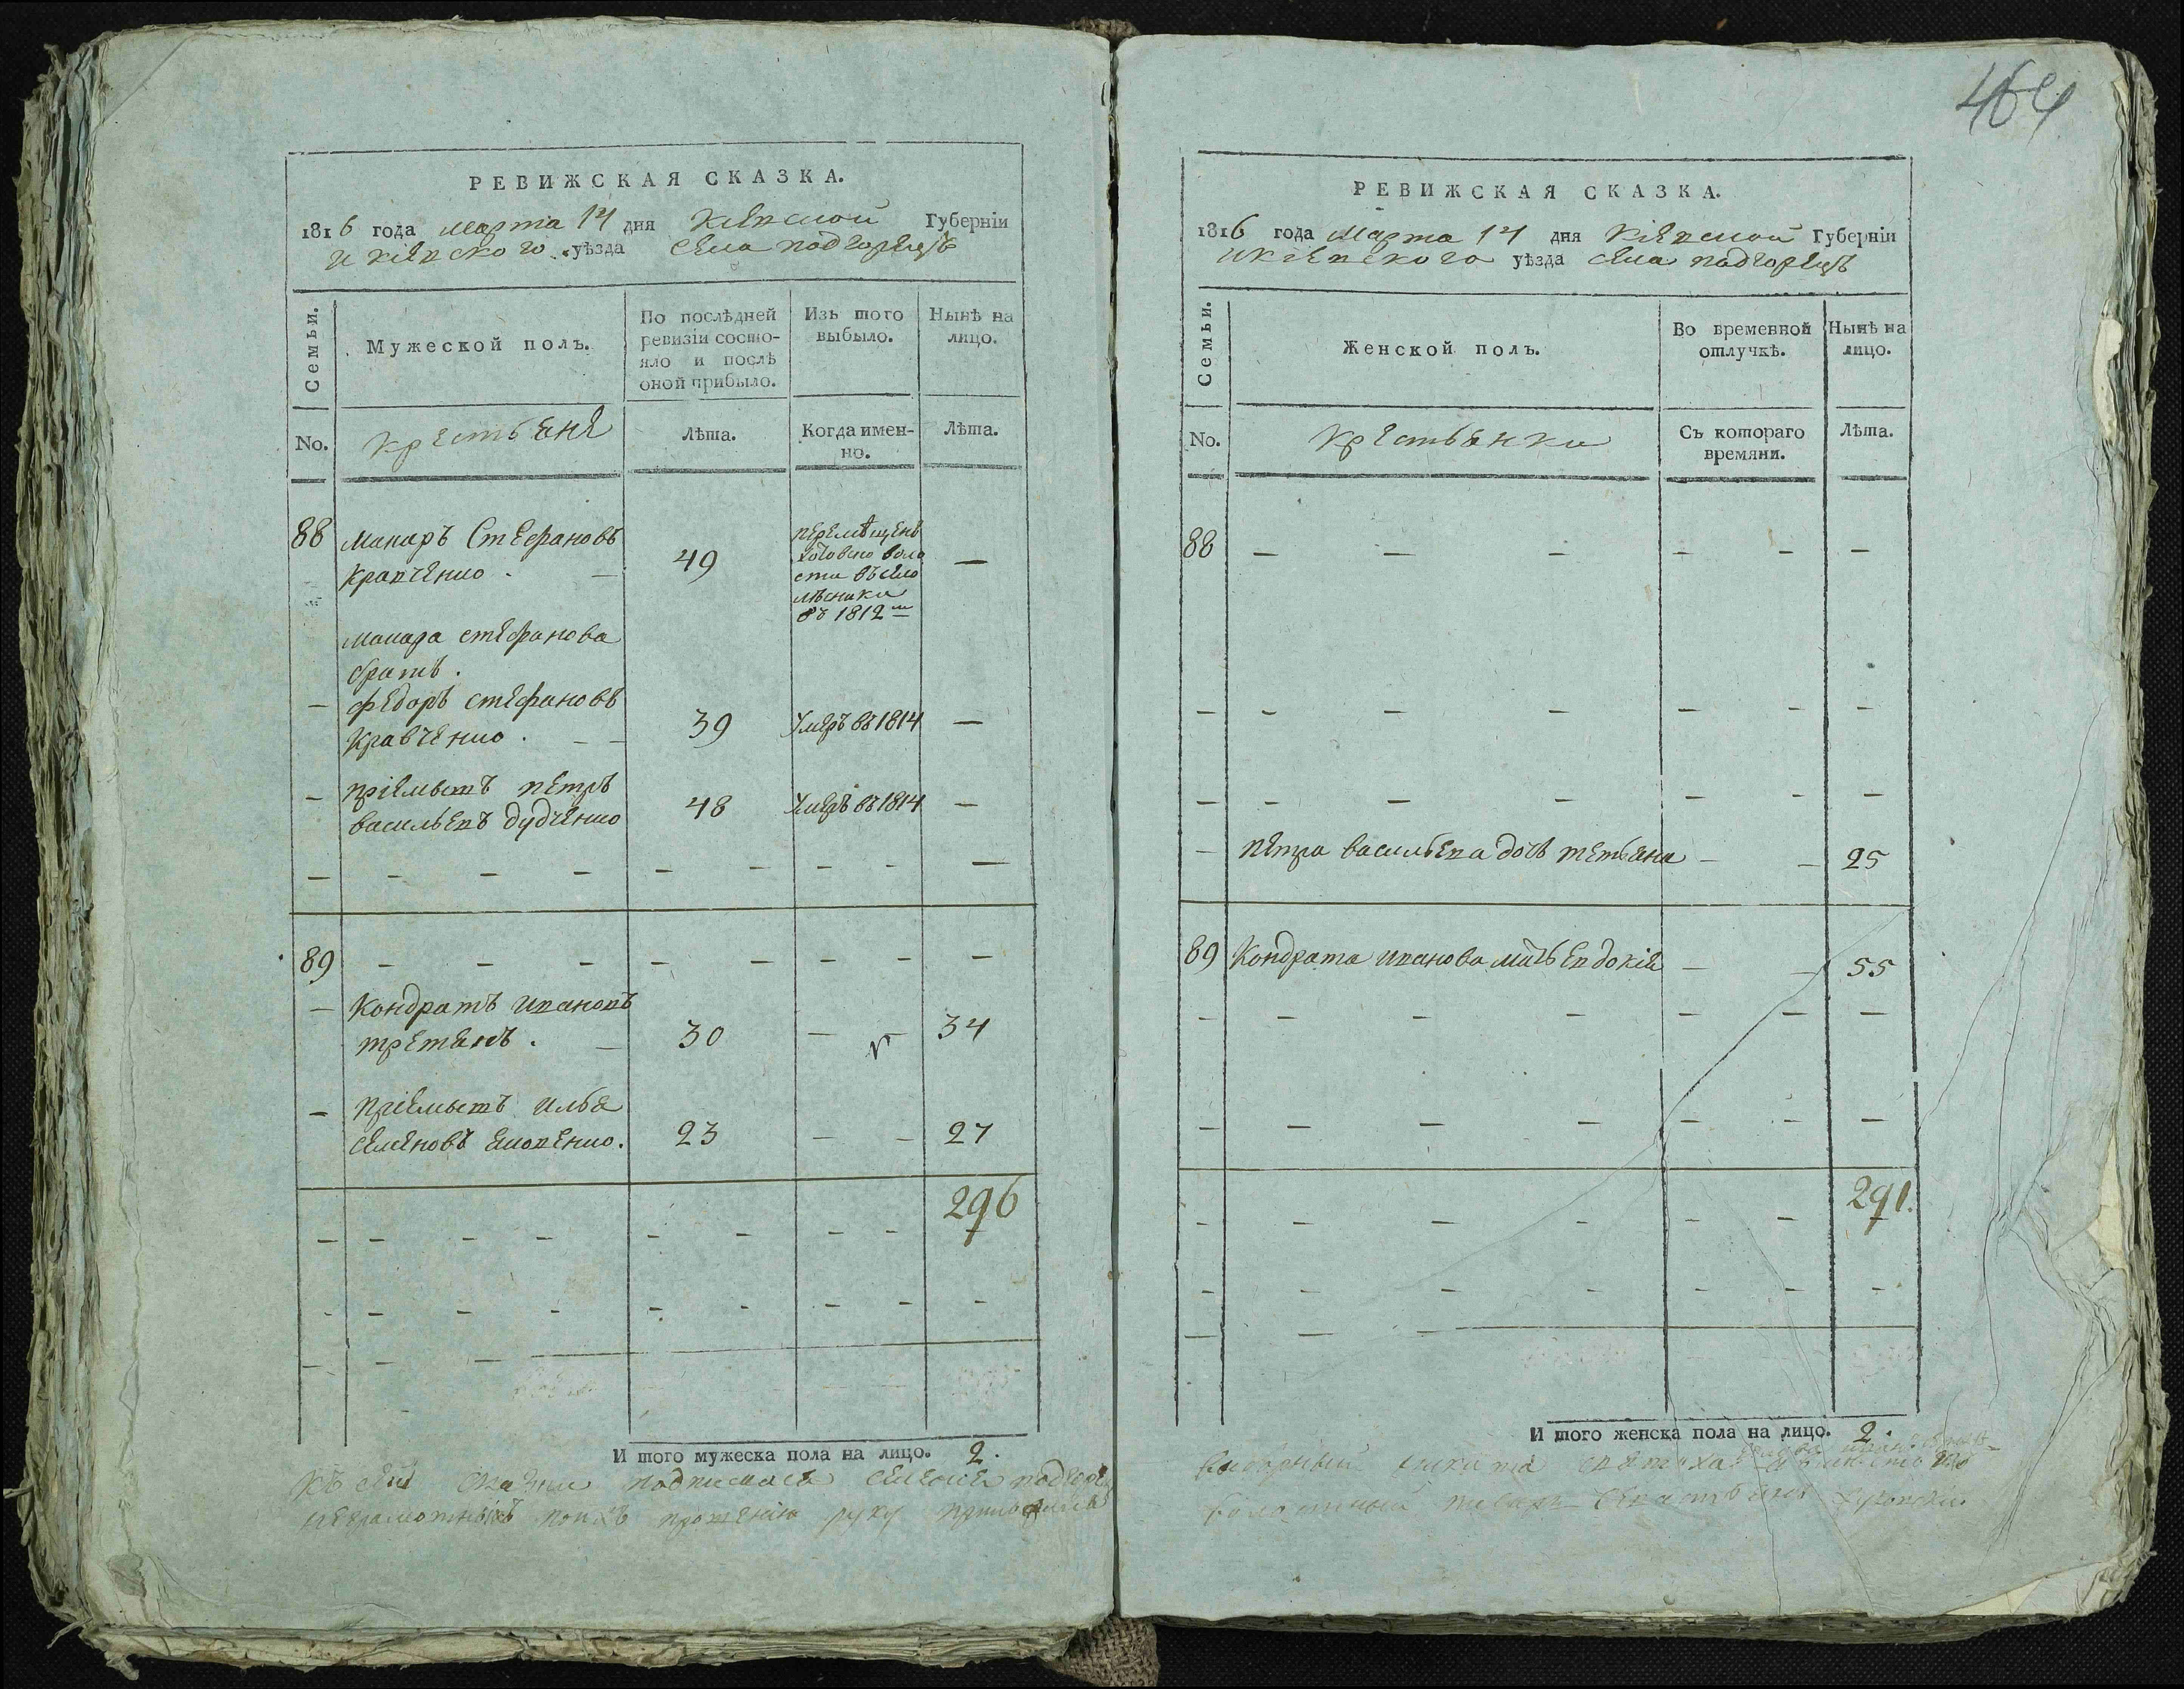 РЕВИЖСКАЯ СКАЗКА.
1816 года марта 14 дня Кіевской Губерніи
и кіевского уѣзда села подгорецъ
Семьи.
Мужеской полъ.
По послѣдней
ревизіи состо-
яло и послѣ
оной прибыло.
Изъ того
выбыло.
Нынѣ на
лицо.
No.
крестьяне
Лѣта.
Когда имен-
но.
Лѣта.
88 Макаръ Стефановъ
Кравченко . — 49 —
перемѣщенъ
воло
сти въ село
лѣсники
въ 1812 м
макара стефанова
братъ .
— федоръ стефановъ
Кравченко . — — 39 Умеръ въ 1814 —
— пріемышъ петръ
васильевъ дудченко 48 Умеръ въ 1814 —
— — — — — — — — —
89 — — — — — — — —
— Кондратъ ивановъ
третякъ . — 30 — — 34
— пріемышъ илья
семеновъ 23 — — 27
— — — — — — — — 296
- — — - — - — — —
— — —
И того мужеска пола на лицо. 2.
къ сей сказки подписался
неграмотныхъ прошенію руку приложилъ
464
РЕВИЖСКАЯ СКАЗКА.
1816 года Марта 14 дня Кіевской Губерніи
и кіевского уѣзда села подгорецъ
Семьи.
Женской полъ.
Во временной
отлучкѣ.
Нынѣ на
лицо.
No.
Крестьянки
Съ котораго
времяни.
Лѣта.
88 — — — — — —
— — — — — — —
— — — — — — —
— петра васильева дочь тетьяна — — 25
89 Кондрата иванова мать Евдокія — — 55
— — — — — — —
— — — — — — —
— — — — — — 291.
— — — — — — —
— — —
И того женска пола на лицо. 2.
выборный никита